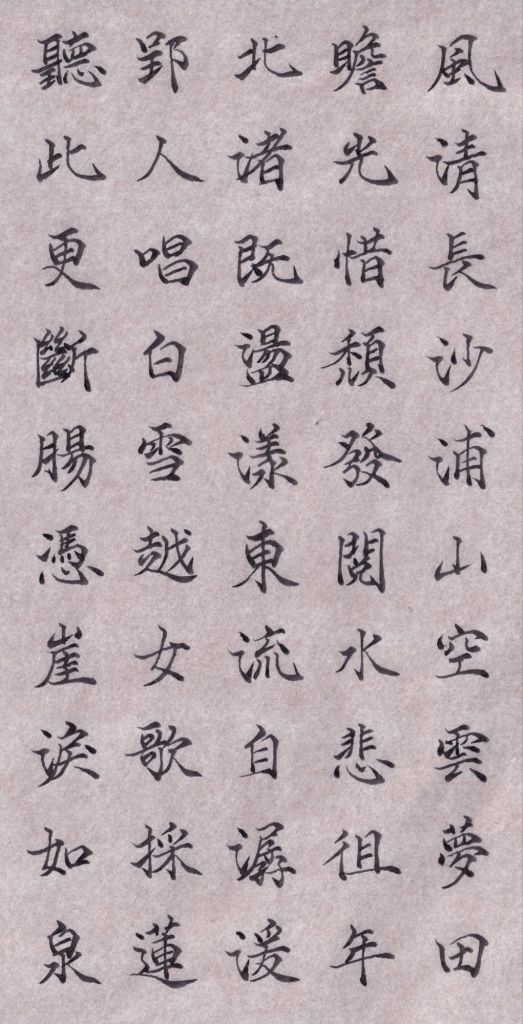 風清長沙浦山空雲夢田
瞻光惜頹發閱水悲徂年
北渚既盪漾東流自潺湲
郢人唱白雪越女歌採蓮
聽此更斷腸憑崖淚如泉